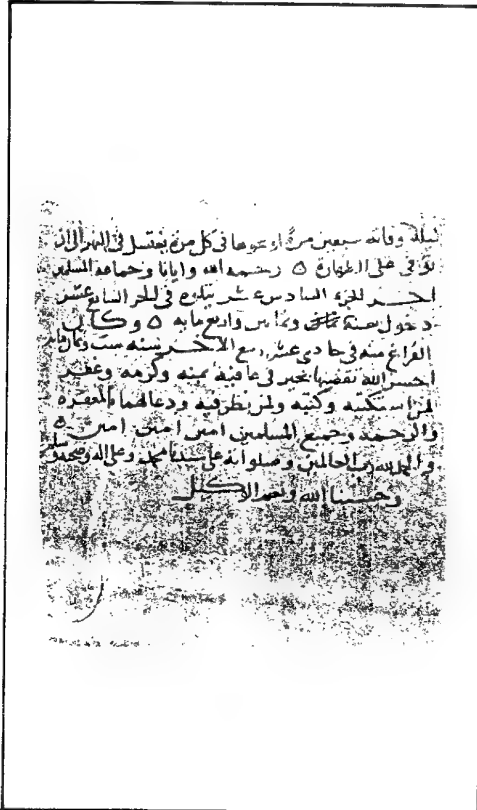 ليلة وفاته سبعين مرة او نحوها في كل مرة يغتسل في النهر الى ان
توفي على الطهارة ٥ رحمه الله وايانا وجماعة المسلمين
اخر الجزء السادس عشر يتلوه في الجزء السابع عشر
دخول سنة ثمان وثمانين واربع مايه ٥ وكان
الفراغ منه في حادي عشر ربيع الاخر سنه ست
احسن الله تقضيها بخير في عافية بمنه وكرمه وغفر
لمن استكتبه وكتبه ولمن نظر فيه ودعا لهما بالمغفرة
والرحمة وجميع المسلمين امين امين امين ٥
والحمد لله رب العالمين وصلواته على سيدنا محمد وعلى اله وصحبه وسلم
وحسبنا الله ونعم الوكيل